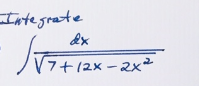 Integrate
∫ dx / √(7 + 12x − 2x²)